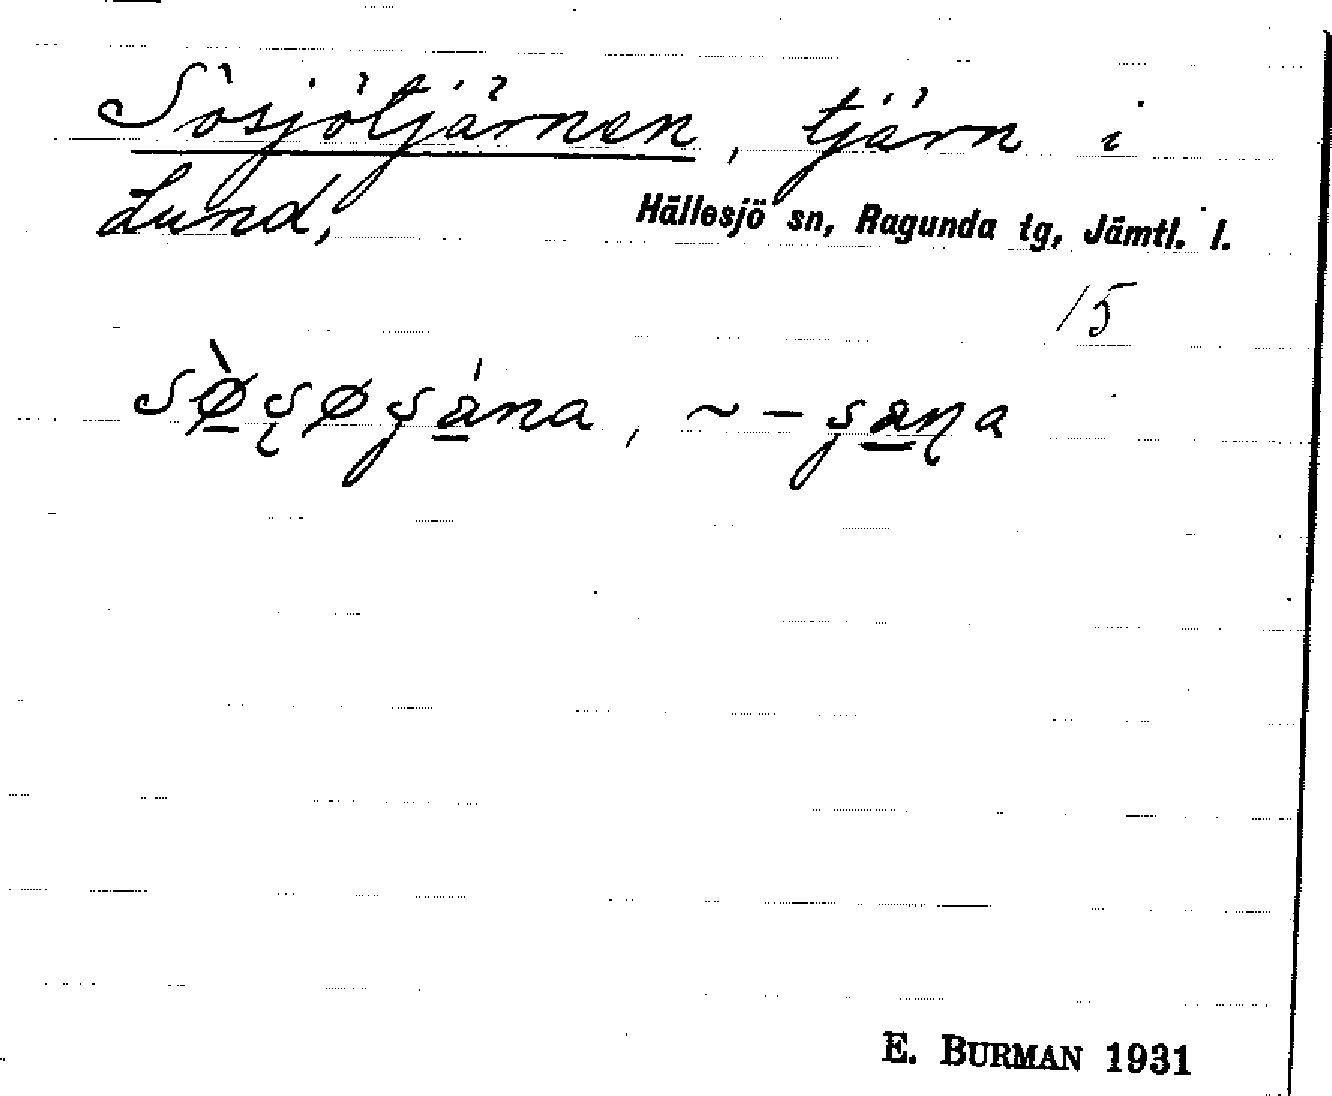 Sösjötjärnen, tjärn i
Lund,
Hällesjö sn, Ragunda tg, Jämtl. l.
15
E. BURMAN 1931